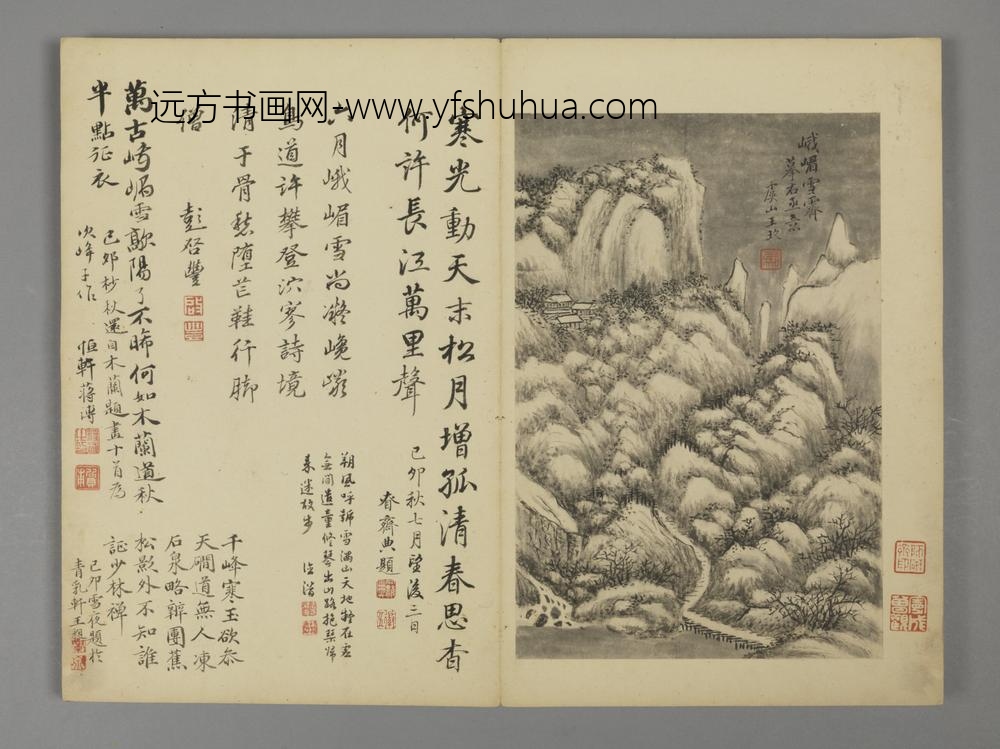 峨嵋雪霽
摹右丞景
虞山王玖
寒光動天末松月增孤清春思杳
何許長江萬里聲
己卯秋七月望後三日
春齋典題
六月峨嵋雪尚凝巉巖
鳥道許攀登泬寥詩境
清于骨愁墮芒鞋行脚
僧
彭啓豐
朔風呼號雪滿山天地
童修琴出山路抱琴歸
來迷故步
萬古峨嵋雪歊陽了不晞何如木蘭道秋
半點征衣
己卯杪秋還自木蘭題畫十首為
次峰子作
恒軒蔣溥
千峰寒玉欲參
天磵道無人凍
石泉略辦團蕉
松影外不知誰
証少林禪
己卯雪夜題於
青乳軒王
远方书画网-www.yfshuhua.com